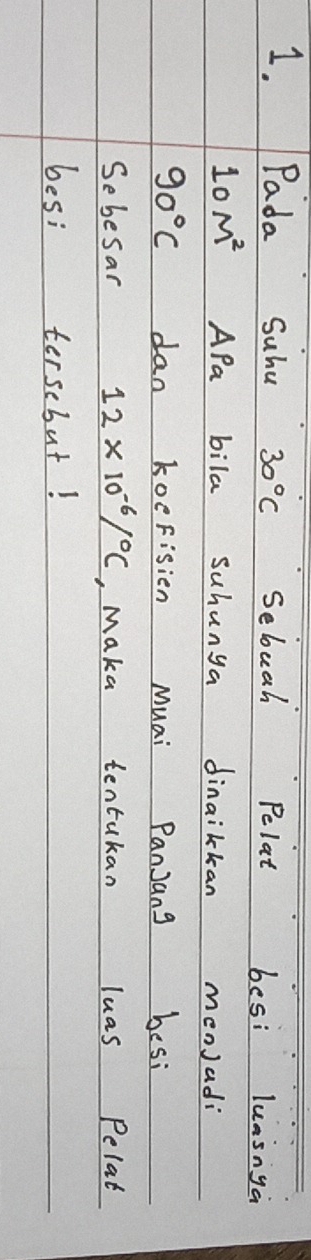 1. Pada Suhu 30°C Sebuah Pelat besi luasnya
10 M² APa bila suhunya dinaikkan menJadi
90°C dan koefisien Muai PanJang besi
Sebesar 12 × 10⁻⁶/°C, Maka tentukan luas Pelat
besi tersebut!